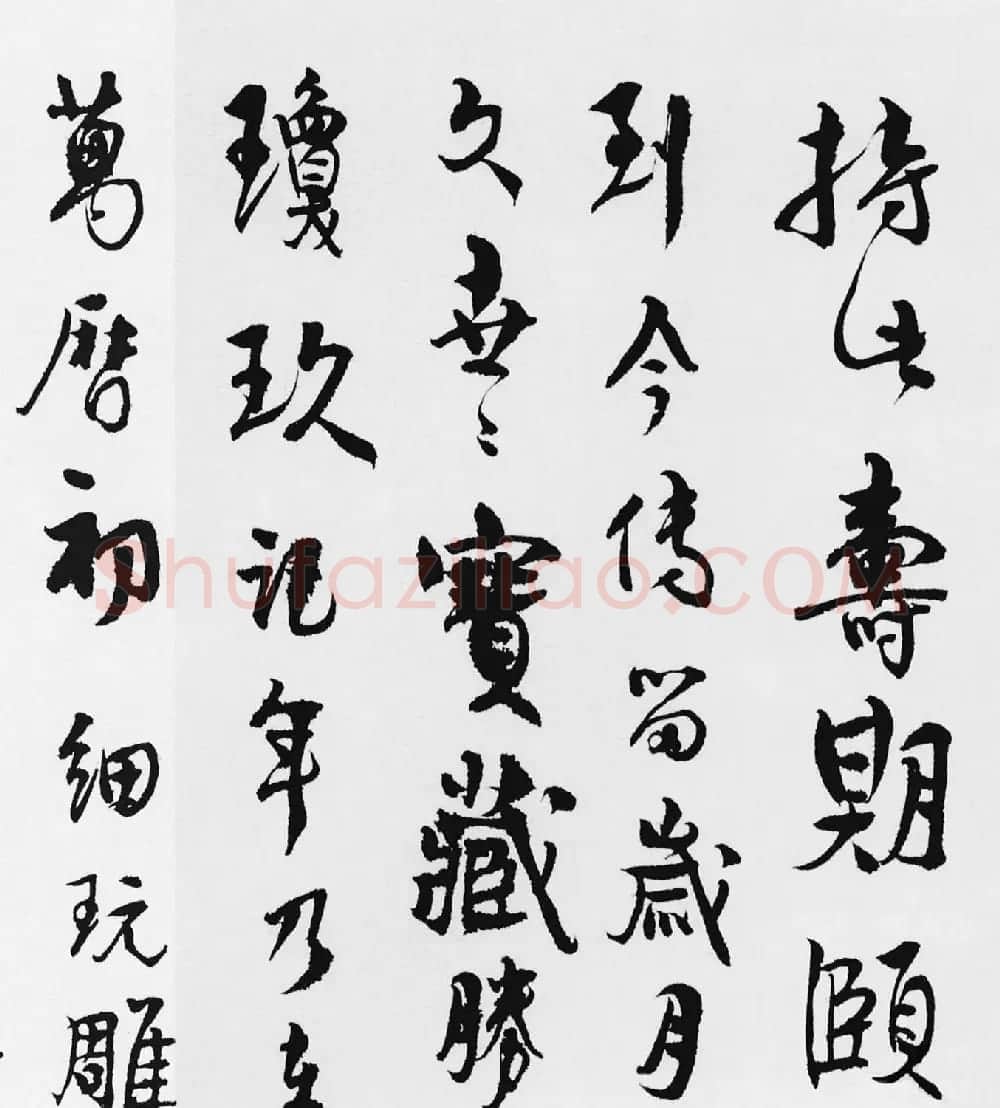 持此壽期頤
到今傳留歲月
久老〻寶藏勝
瓊玖記年乃在
萬曆初細玩雕
Shufaziliao.COM